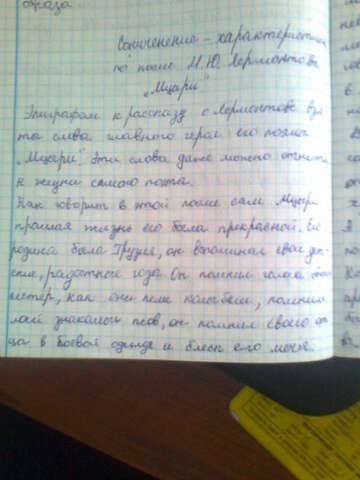 образа
Сочинение - характеристика
по поэме М.Ю. Лермонтова
„Мцыри"
Эпиграфом к рассказу о Лермонтове взя
та слова главного героя его поэмы
„Мцыри". Эти слова даже можно отнести
к жизни самого поэта.
Как говорит в этой поэме сам Мцыри
прошлая жизнь его была прекрасной. Его
родина была Грузия, он вспоминал свои дет-
ские, радостные года. Он помнил голоса
сестер, как они пели колыбель, помнил
лай знакомых псов, он помнил своего от
ца в боевой одежде и блеск его меча.